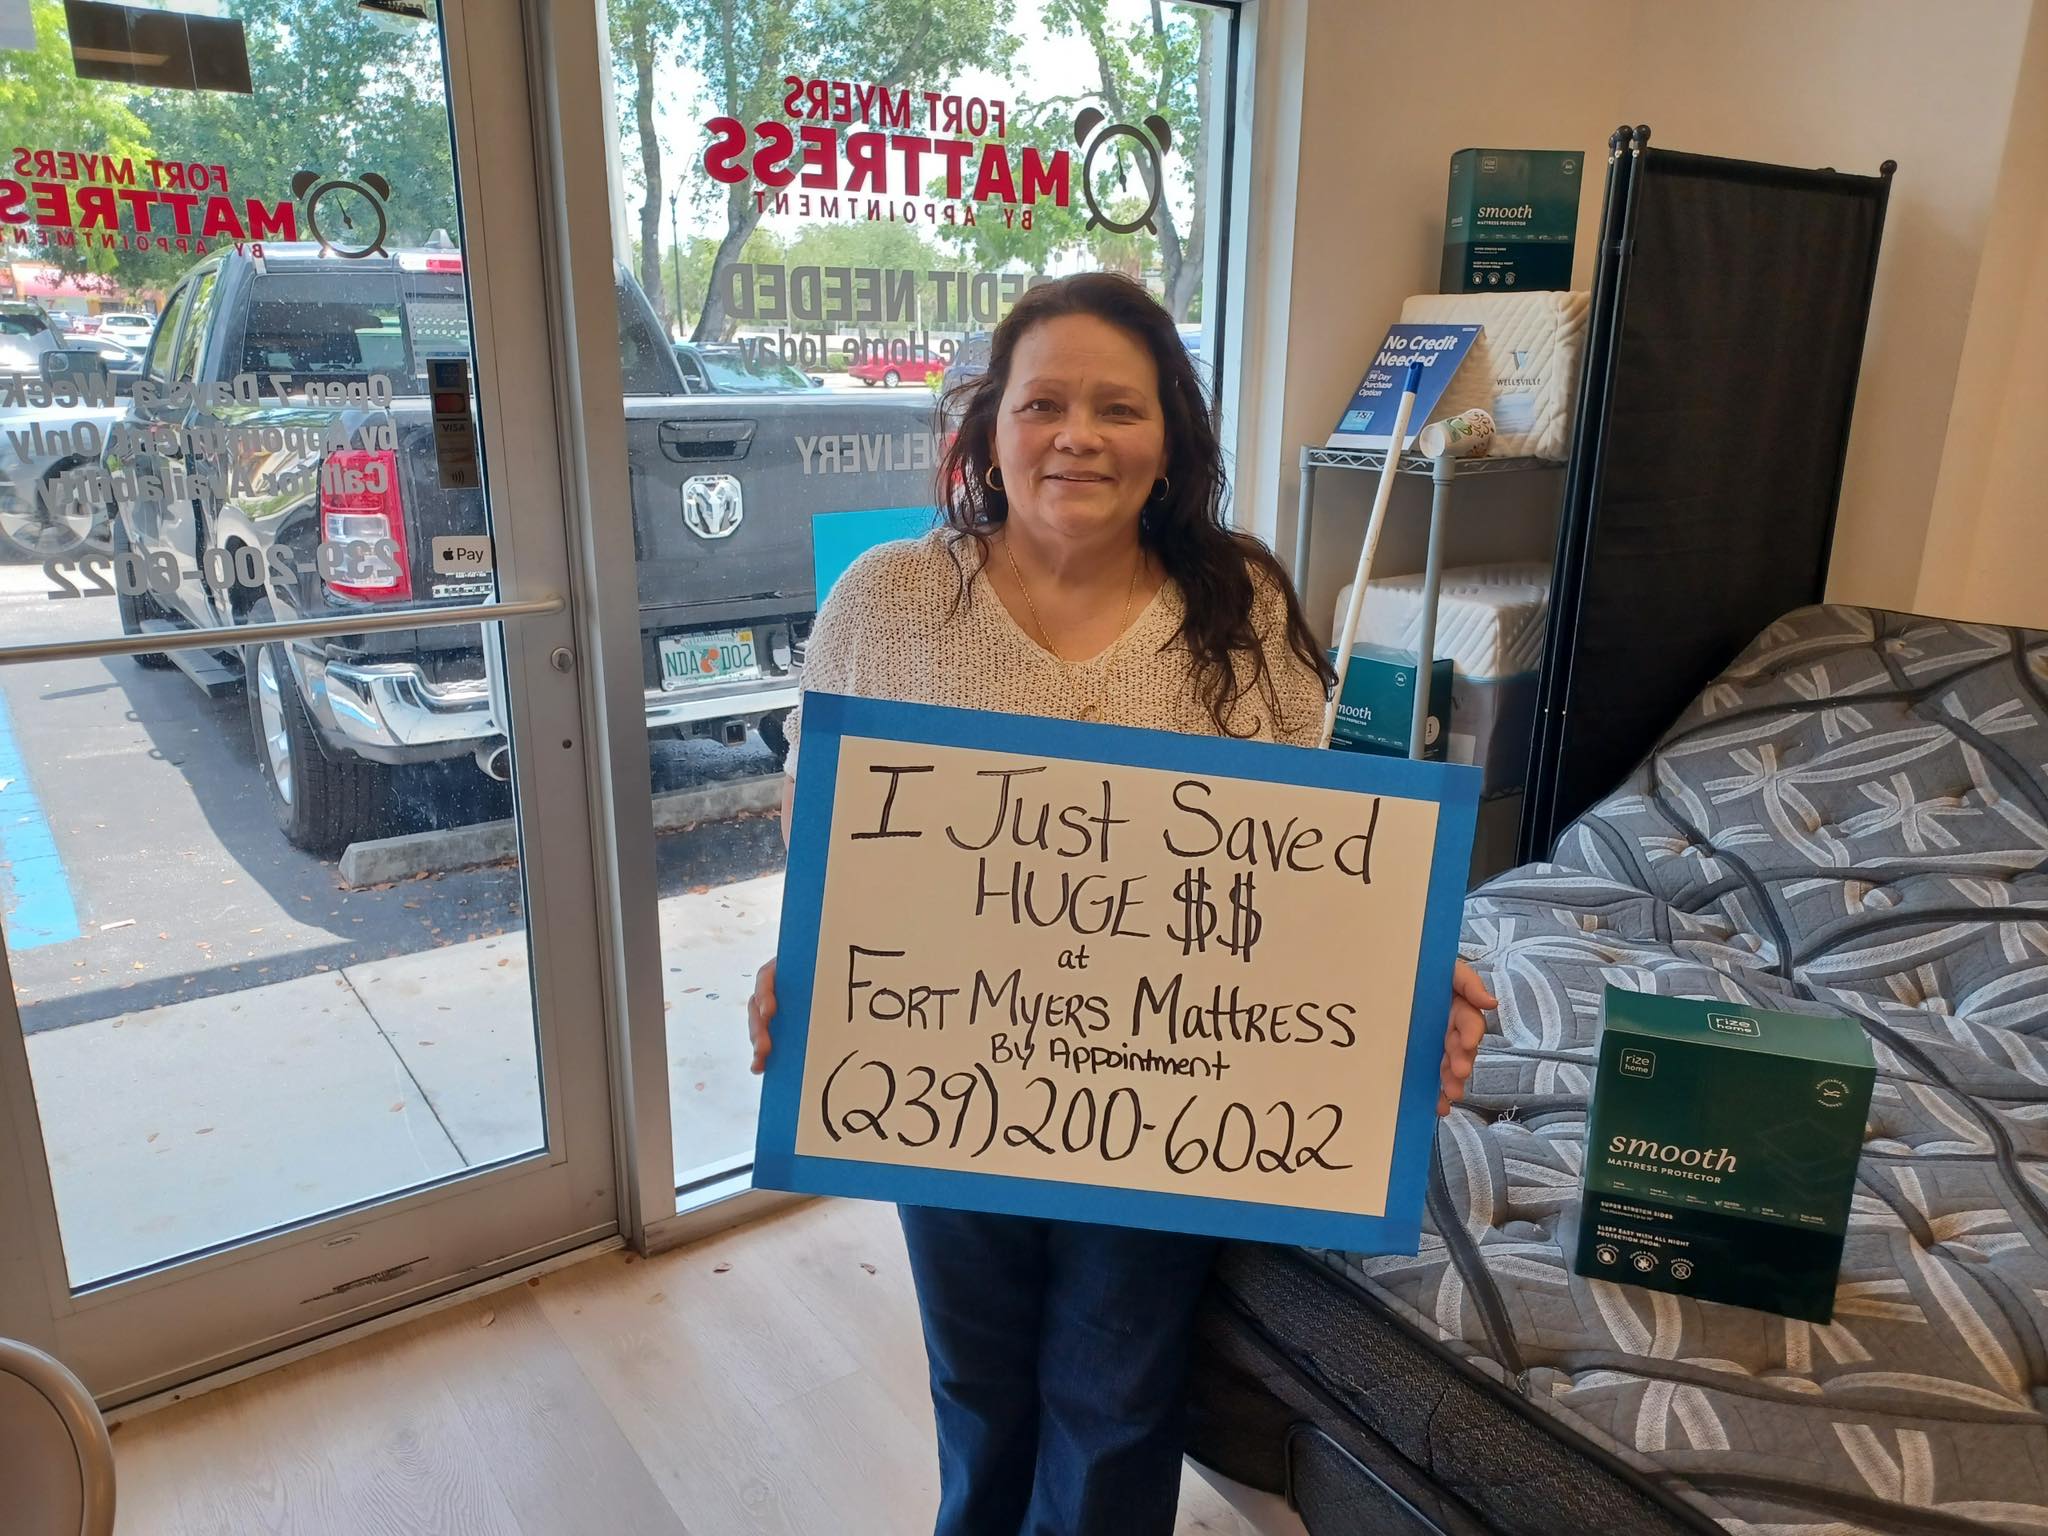 FORT MYERS
MATTRESS
BY APPOINTMENT
Open 7 Days a Week
by Appointment Only
Call for Availability
239-200-6022
VISA
Pay
FORT MYERS
MATTRESS
BY APPOINTMENT
EDIT NEEDED
ke Home Today
DELIVERY
RAM
NDA DOS
smooth
MATTRESS PROTECTOR
No Credit
Needed
90 Day
Purchase
Option
WELLSVILLE
mooth
I Just Saved
HUGE $$
at
FORT MYERS MATTRESS
By Appointment
(239) 200-6022
rize
home
rize
home
smooth
MATTRESS PROTECTOR
SUPER STRETCH SIDES
SLEEP EASY WITH ALL NIGHT
PROTECTION FROM: